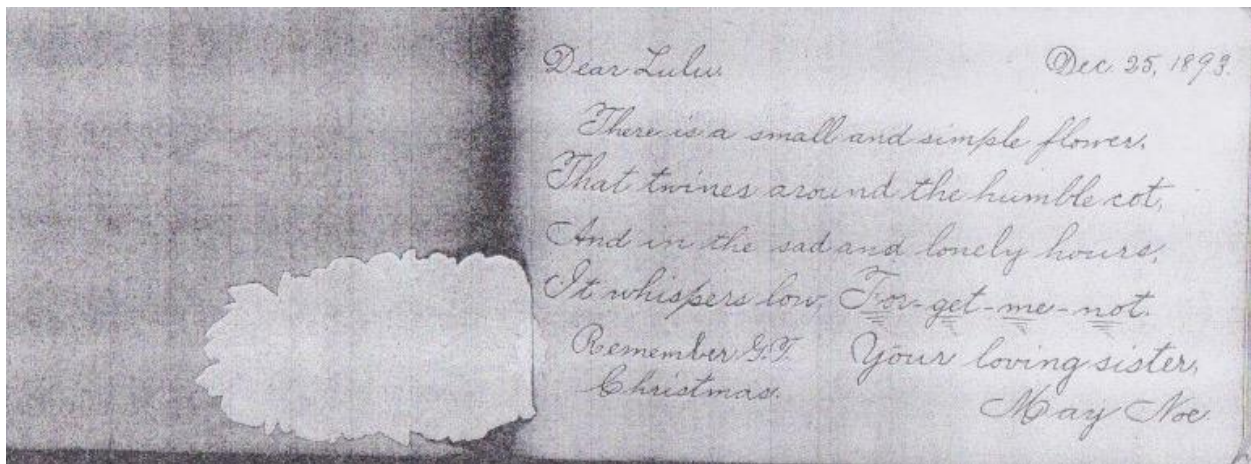 Dear Lulu. Dec. 25, 1893.
There is a small and simple flower,
That twines around the humble cot,
And in the sad and lonely hours,
It whispers low, For-get-me-not.
Remember G.T. Your loving sister,
Christmas. May Noe